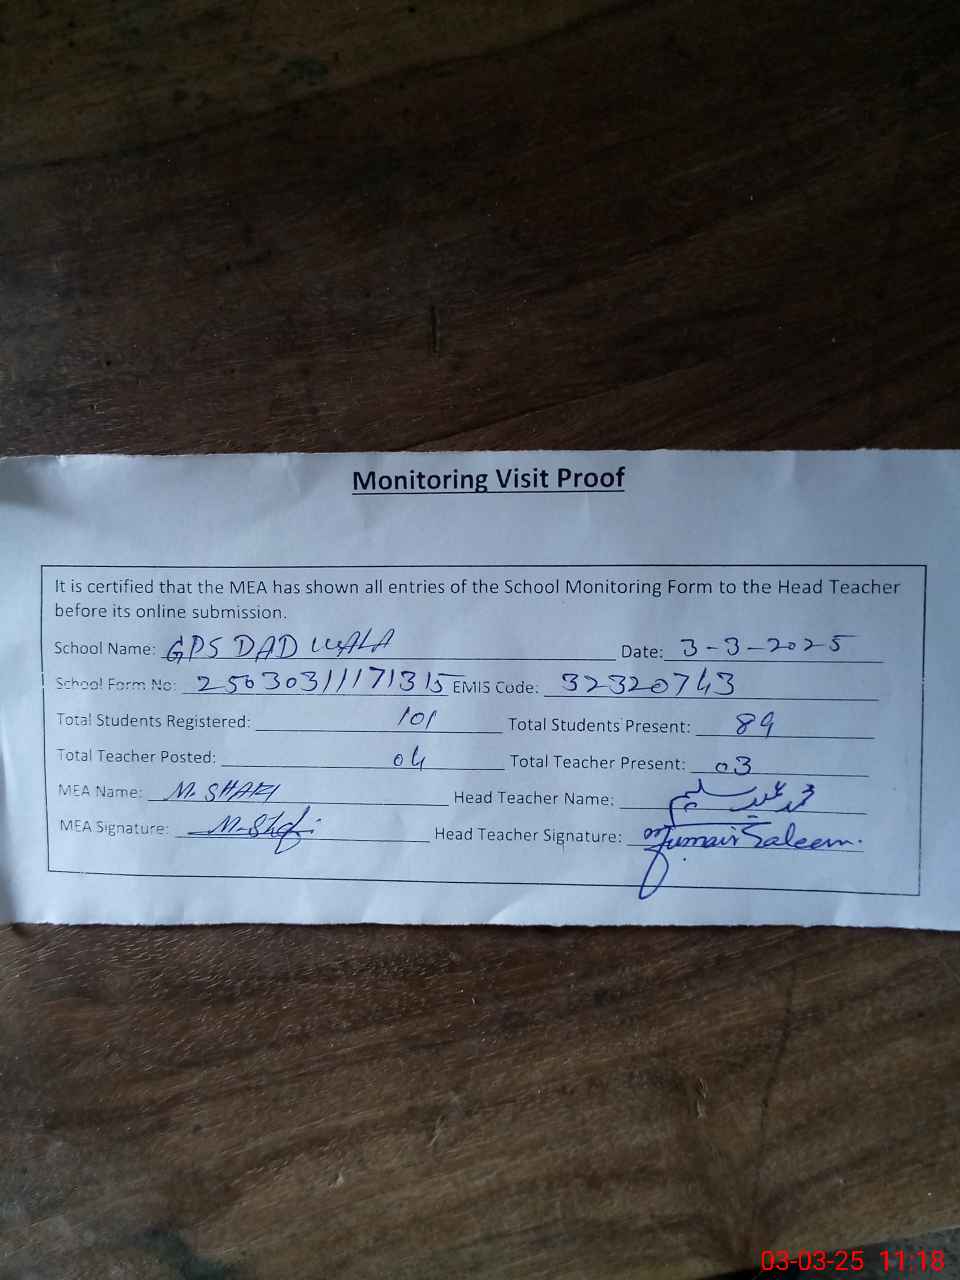 Monitoring Visit Proof
It is certified that the MEA has shown all entries of the School Monitoring Form to the Head Teacher
before its online submission.
School Name: GPS DAD WALA Date: 3-3-2025
School Form No: 25030311171315 EMIS Code: 32320743
Total Students Registered: 101 Total Students Present: 89
Total Teacher Posted: 04 Total Teacher Present: 03
MEA Name: M. SHAFI Head Teacher Name: محمد عمیر سلیم
MEA Signature: M. Shafi Head Teacher Signature: Saleem.
03-03-25 11:18